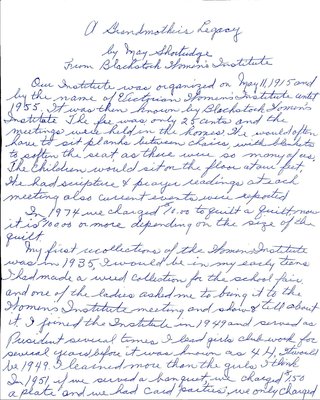 A Grandmother's Legacy
by May Shortridge
From Blackstock Women's Institute
Our Institute was organized on May 11, 1915 and
by the name of Victorian Women's Institute until
1955. It was then known by Blackstock Women's
Institute The fee was only 25 cents and the
meetings were held in the homes. We would often
have to sit planks between chairs, with blankets
to soften the seat as there were so many of us,
The children would sit on the floor at our feet,
We had scripture & prayer readings at each
meeting also current events were reported
In 1974 we charged to quilt a quilt, now
it is or more depending on the size of the
quilt.
My first recollections of the Women's Institute
was in 1935, I would be in my early teens
I had made a weed collection for the school fair
and one of the ladies asked me to bring it to the
Women's Institute meeting and show & tell about
it. I joined the Institute in 1949 and served as
President several times I lead girls club work for
several years before it was known as 4 H, It would
be 1949. I learned more than the girls I think
In 1951, if we served a banquet, we charged $1.50
a plate and we had card parties, we only charged